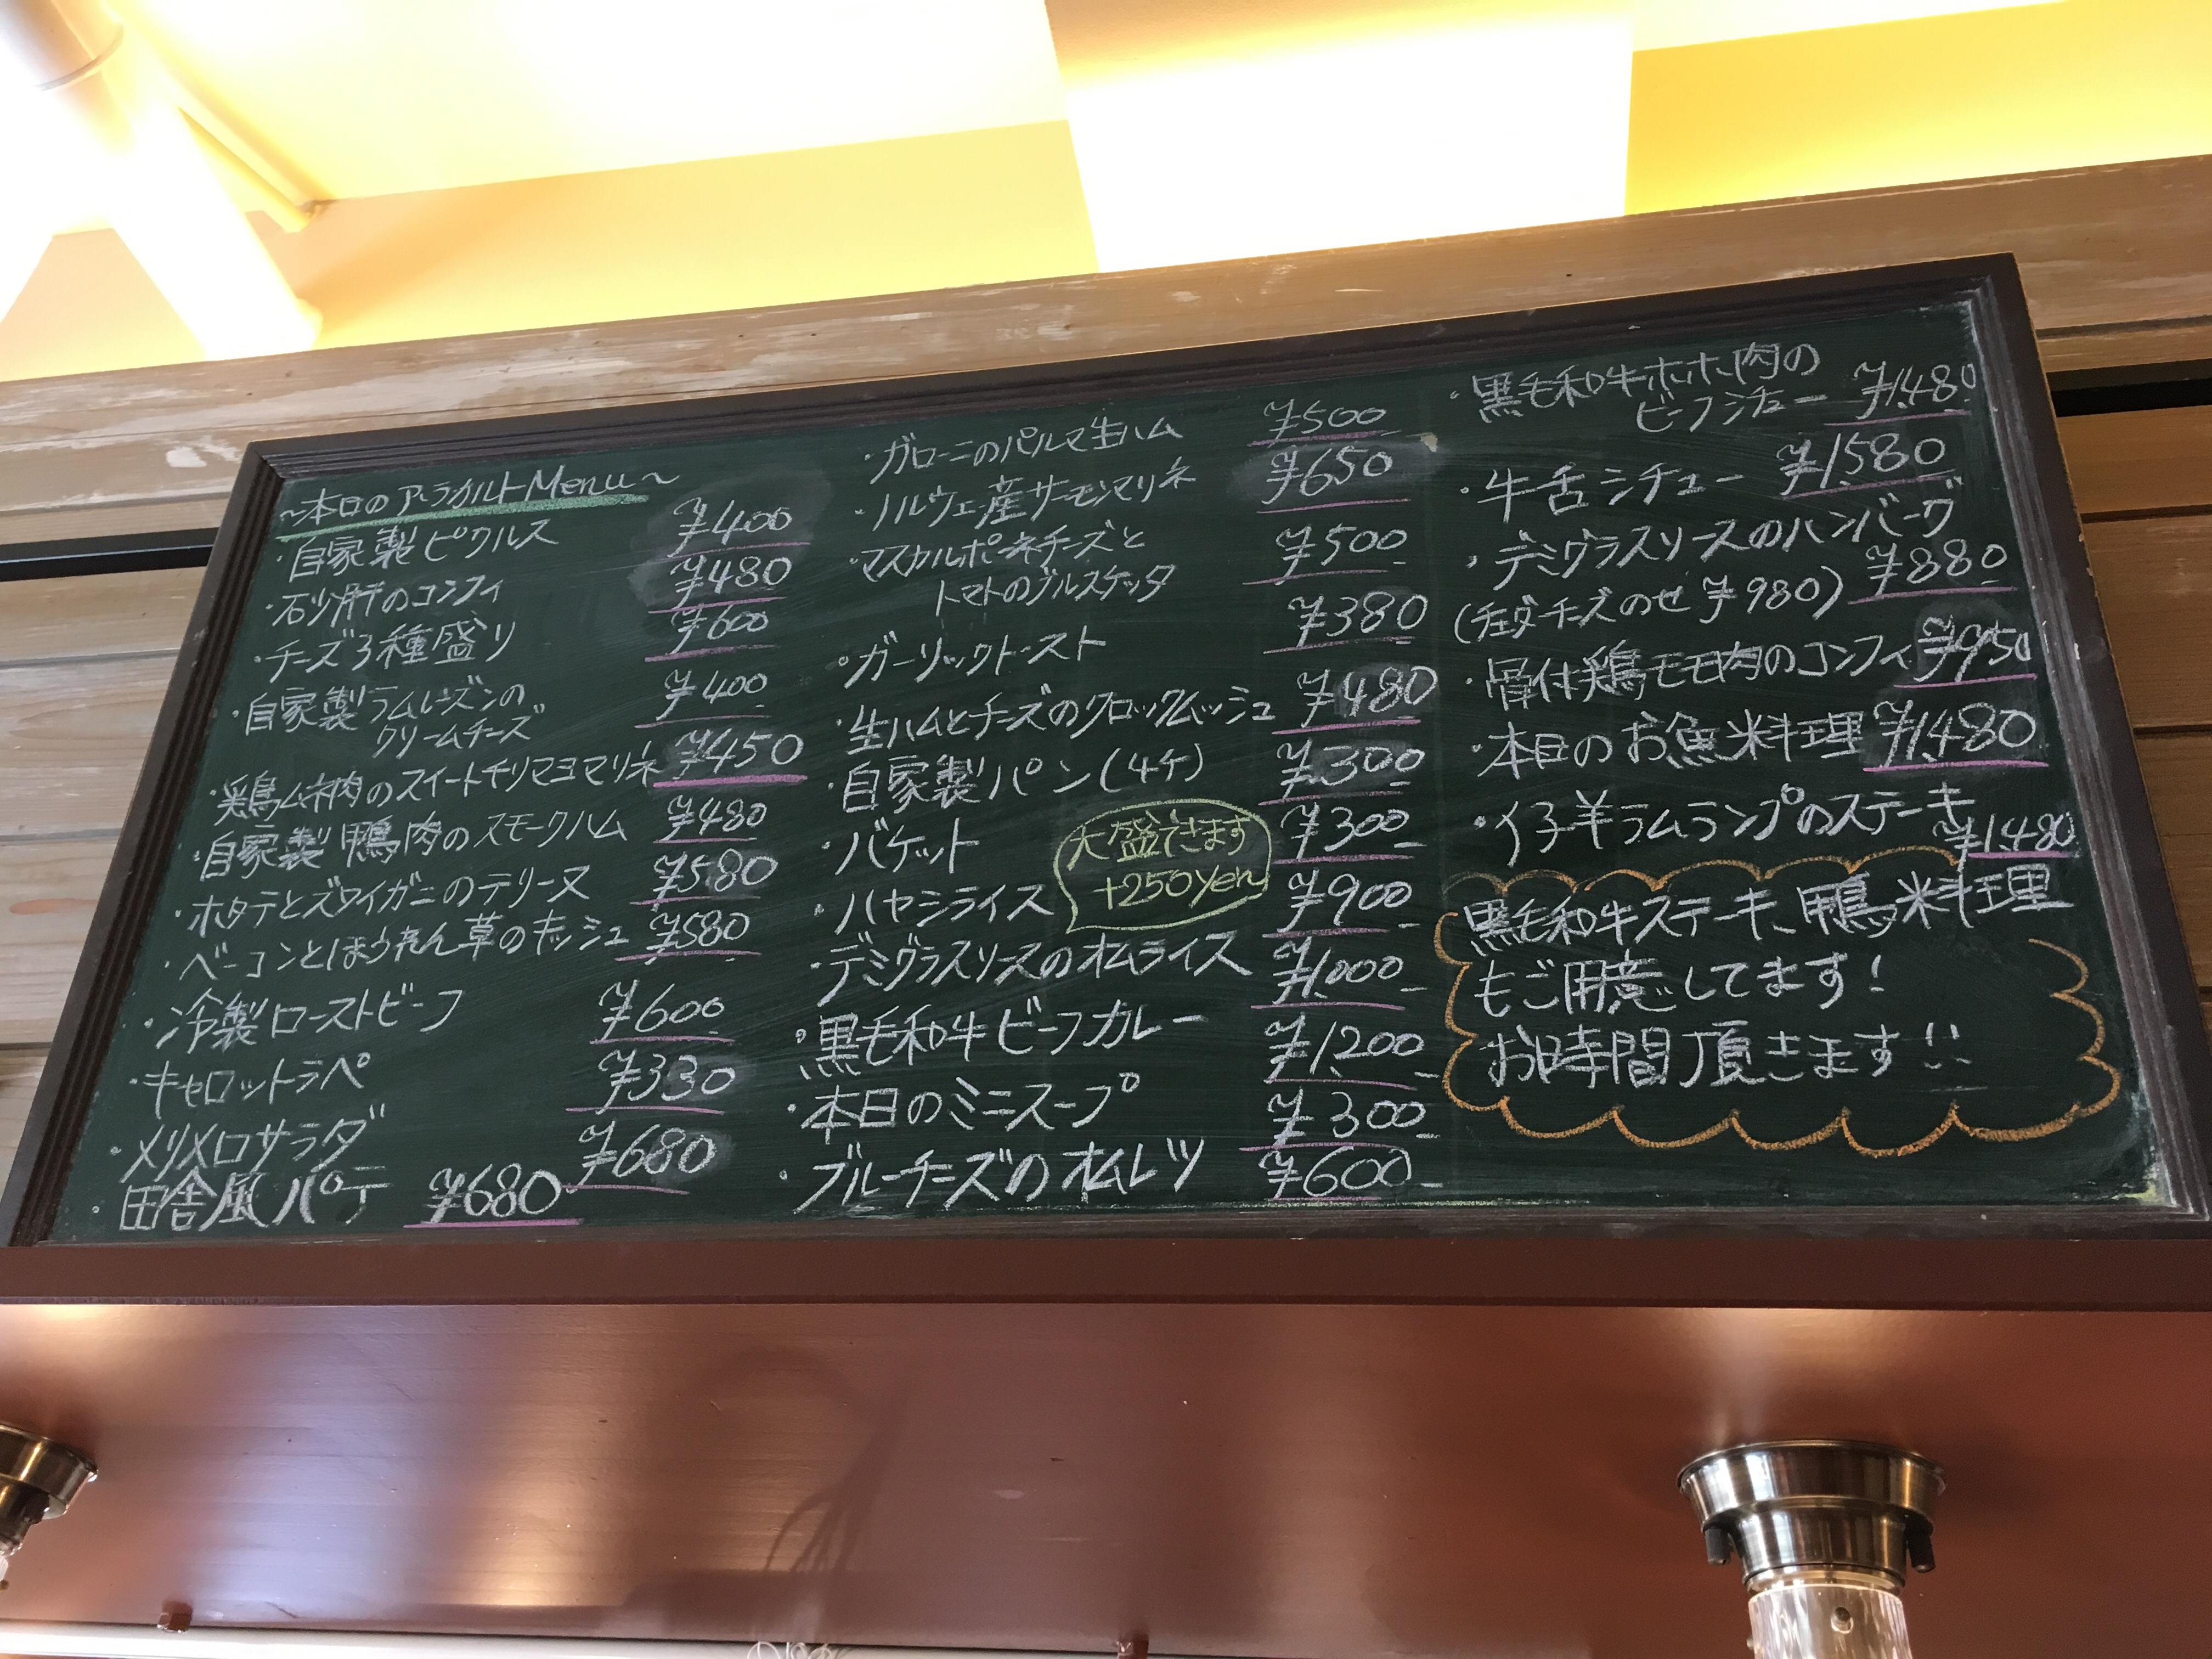 ～本日のアラカルトMenu～
・自家製ピクルス ¥400
・砂肝のコンフィ ¥480
・チーズ3種盛り ¥600
・自家製ラムレーズンの
クリームチーズ ¥400
・鶏ムネ肉のスイートチリマヨマリネ ¥450
・自家製鴨肉のスモークハム ¥480
・ホタテとズワイガニのテリーヌ ¥580
・ベーコンとほうれん草のキッシュ ¥580
・冷製ローストビーフ ¥600
・キャロットラペ ¥330
・メリメロサラダ ¥680
・田舎風パテ ¥680
・ガローニのパルマ生ハム ¥500
・ノルウェー産サーモンマリネ ¥650
・マスカルポーネチーズと
トマトのブルスケッタ ¥500
・ガーリックトースト ¥380
・生ハムとチーズのクロックムッシュ ¥480
・自家製パン(4ケ) ¥300
・バケット ¥300
・ハヤシライス ¥900
大盛できます
+250yen
・デミグラスソースのオムライス ¥1,000
・黒毛和牛ビーフカレー ¥1,200
・本日のミニスープ ¥300
・ブルーチーズのオムレツ ¥600
・黒毛和牛ホホ肉の
ビーフシチュー ¥1,480
・牛舌シチュー ¥1,580
・デミグラスソースのハンバーグ
(チェダーチーズのせ ¥980) ¥880
・骨付鶏モモ肉のコンフィ ¥950
・本日のお魚料理 ¥1,480
・仔羊ラムランプのステーキ
¥1,480
黒毛和牛ステーキ、鴨料理
もご用意してます!
お時間頂きます!!